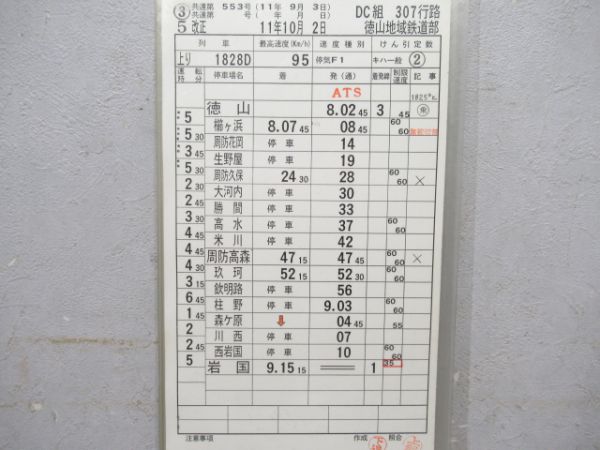 ③ 共達第 553号 (11年 9月 3日) DC組 307行路
共達第 号 ( 年 月 日)
5 改正 11年10月 2日 徳山地域鉄道部
列車 最高速度(Km/h) 速度種別 けん引定数
上り 1828D 95 停気F1 キハ一般 ②
運転時分 停車場名 着 発(通) 着発線 制限速度 記事
ATS 1825
徳山 8.02 45 3 45
5 櫛ヶ浜 8.07 45 08 45 60 60
5 30 周防花岡 停車 14
3 45 生野屋 停車 19
5 周防久保 24 30 28 60 60 ×
2 30 大河内 停車 30
2 勝間 停車 33
3 30 高水 停車 37 60 60
4 米川 停車 42
4 45 周防高森 47 15 47 45 60 60 ×
4 30 玖珂 52 15 52 30 60 60
3 欽明路 停車 56
6 15 柱野 停車 9.03
1 45 森ケ原 ↓ 04 45 55
2 川西 停車 07
2 45 西岩国 停車 10 60 60
5 岩国 9.15 15 1 35
注意事項 作成 照合